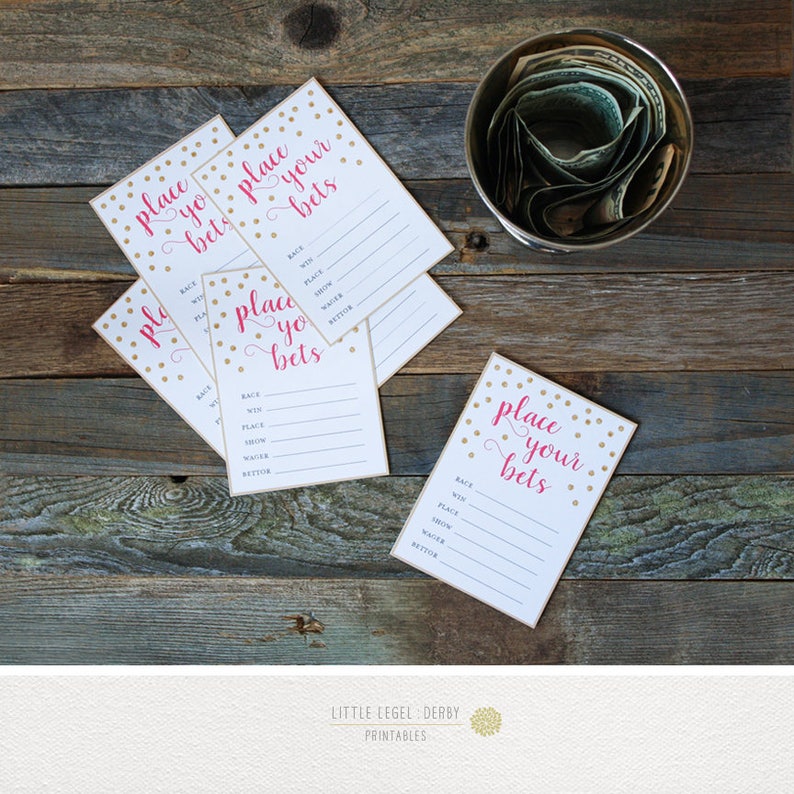 place
your
bets
RACE
WIN
PLACE
SHOW
WAGER
BETTOR
place
yo
bets
RACE
place
yo
bets
RACE
WIN
PLACE
SHOW
WAGER
BETTOR
place
place
your
bets
RACE
WIN
PLACE
SHOW
WAGER
BETTOR
LITTLE LEGEL : DERBY
PRINTABLES